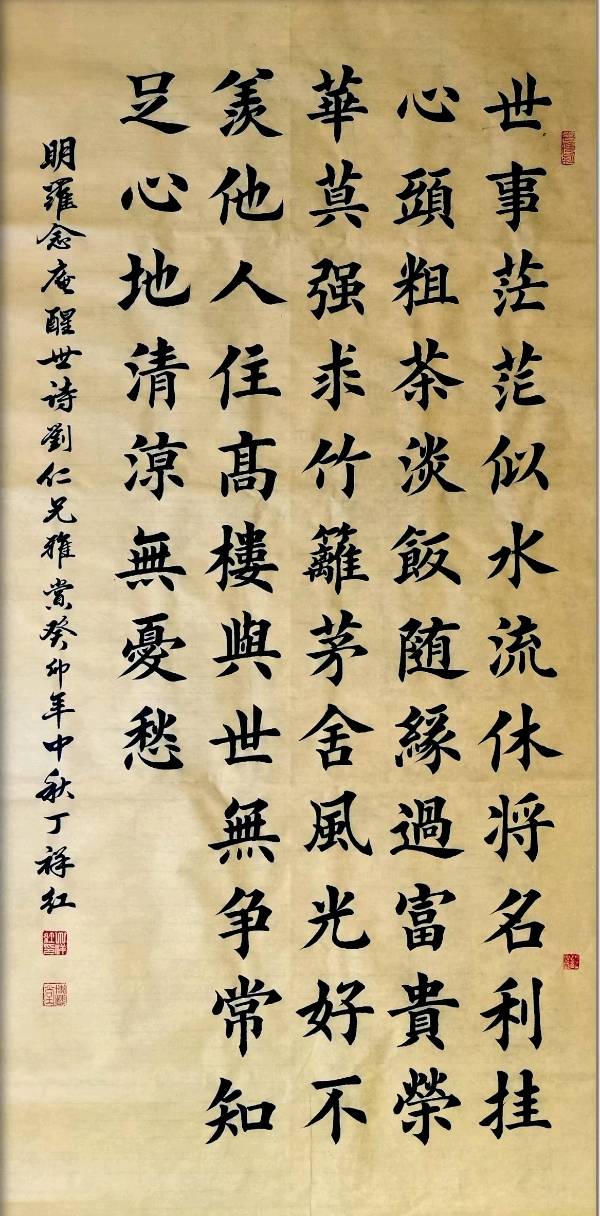 世事茫茫似水流休将名利挂
心頭粗茶淡飯随緣過富貴榮
華莫强求竹籬茅舍風光好不
羨他人住髙樓與世無争常知
足心地清涼無憂愁
明羅念庵醒世诗劉仁兄雅賞癸卯年中秋丁祥红